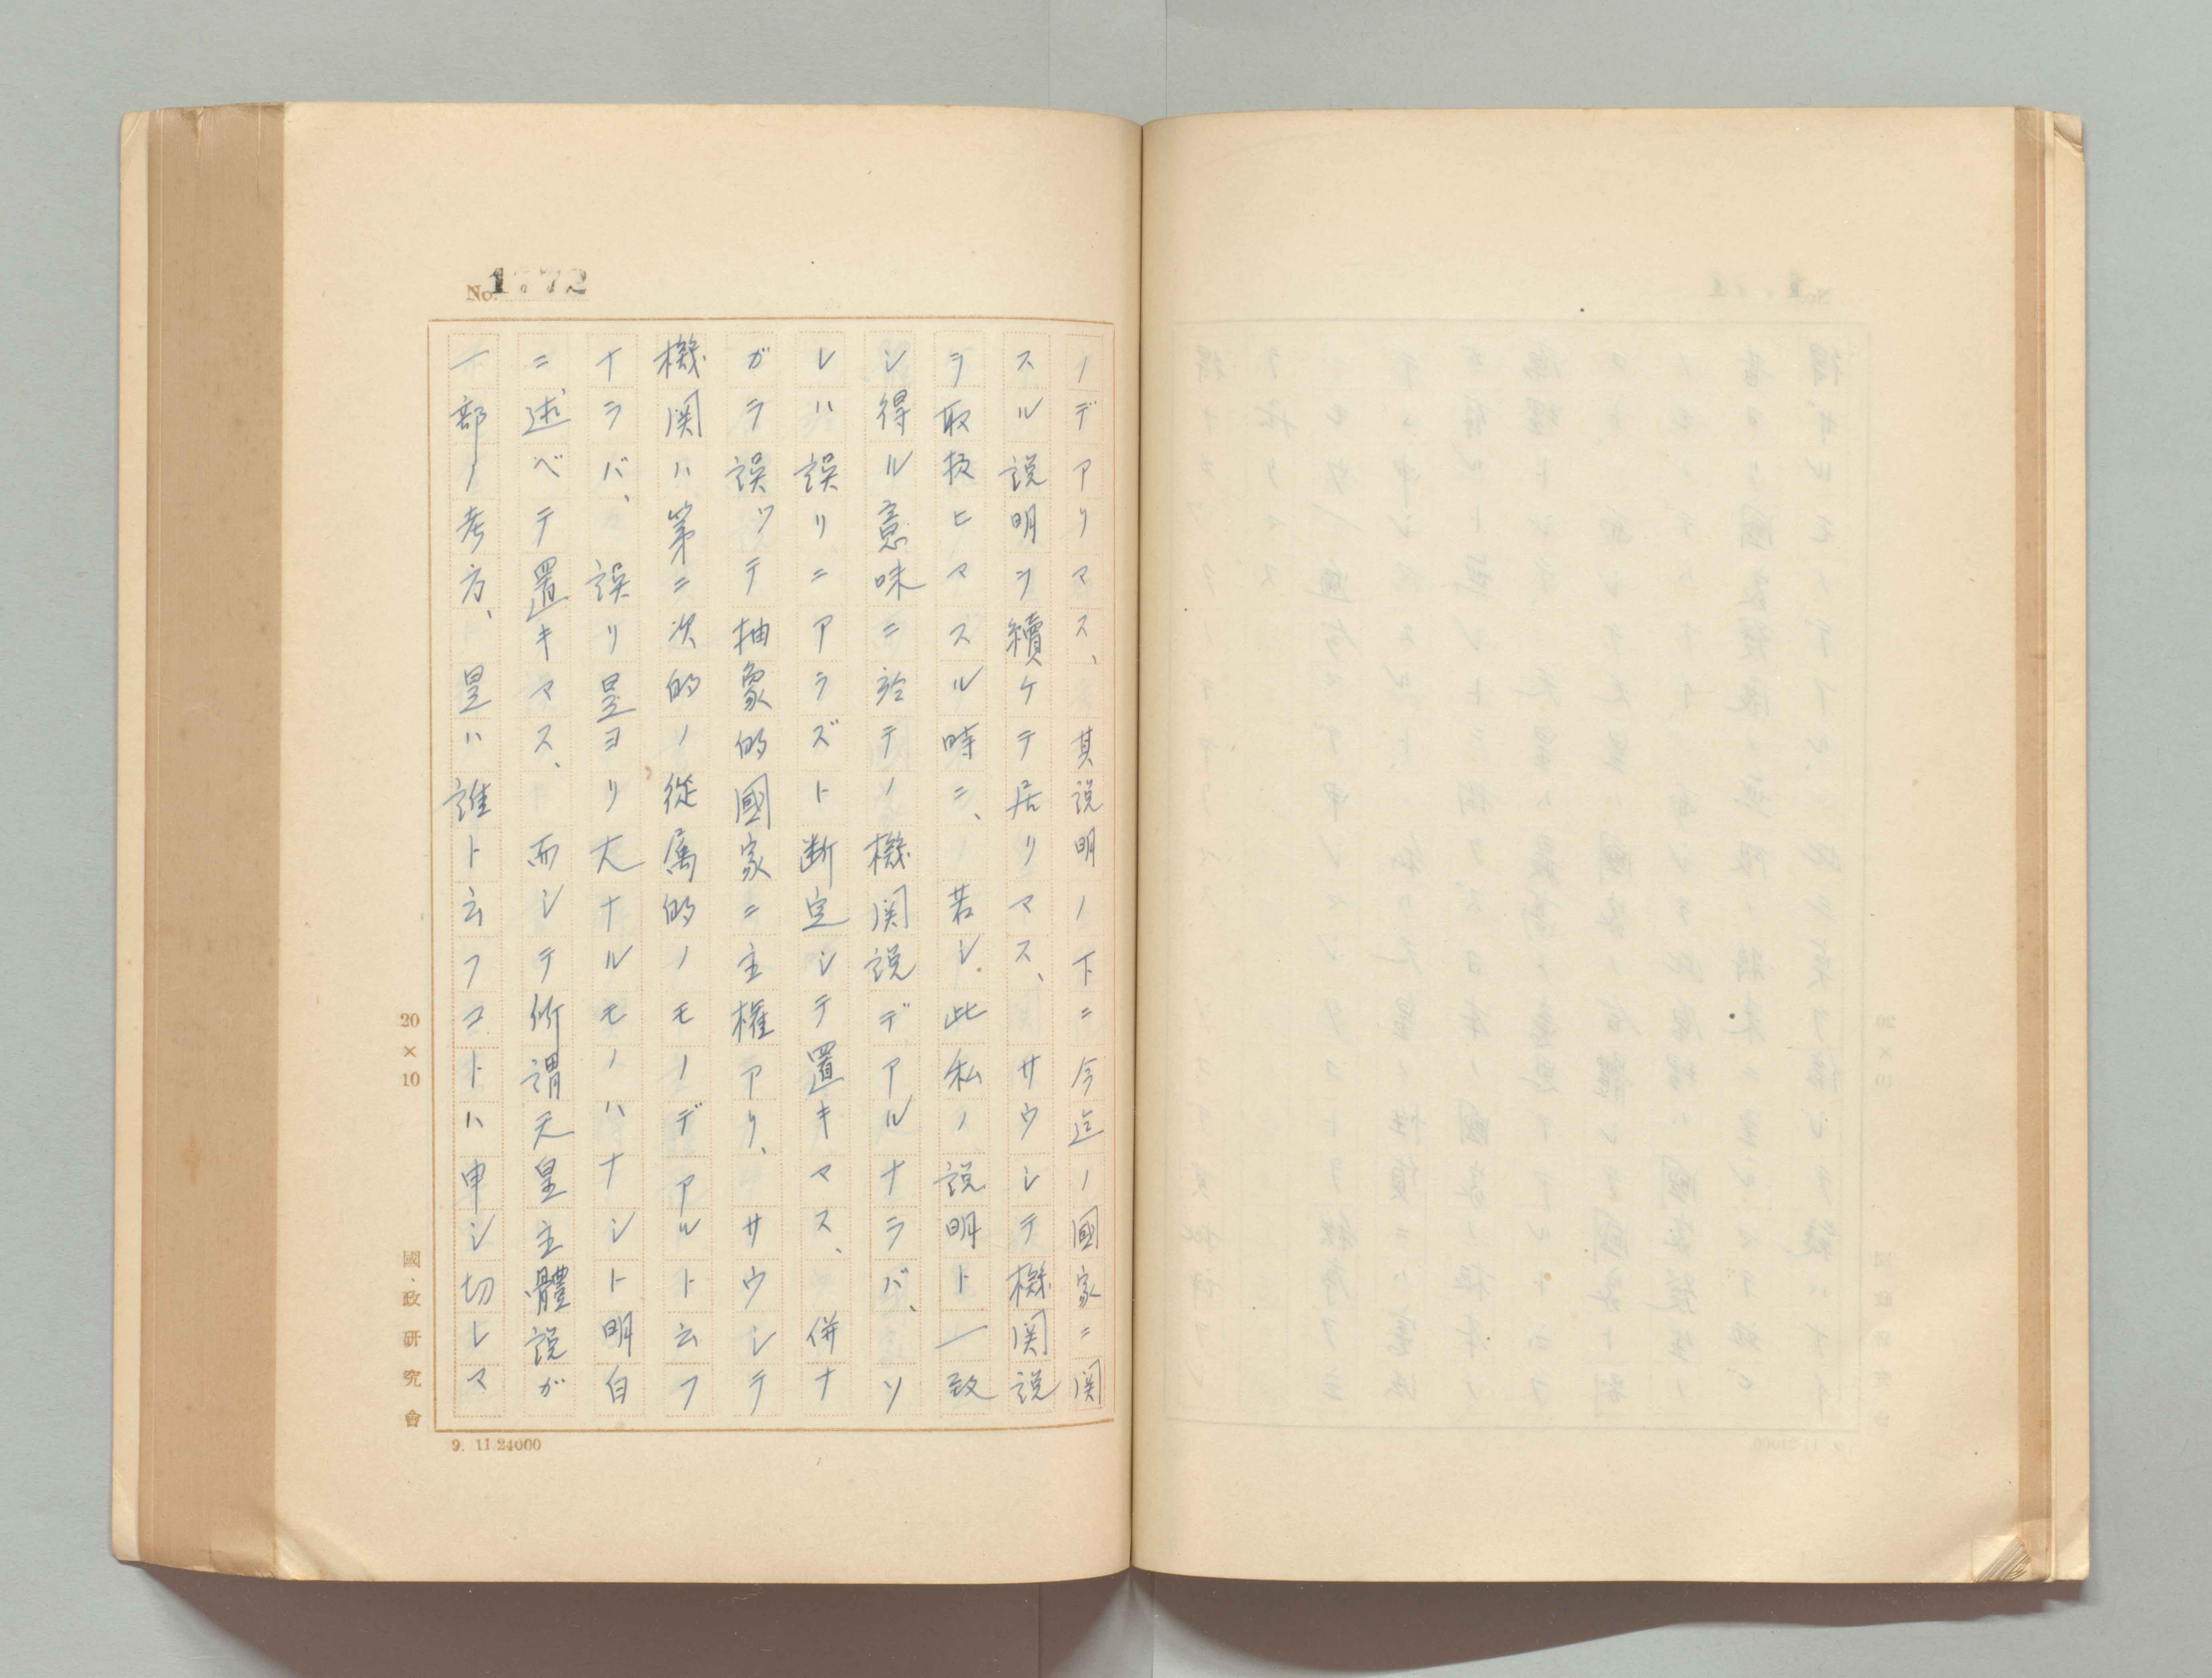 No. 1772
ノデアリマス、其説明ノ下ニ今迄ノ國家ニ関
スル説明ヲ續ケテ居リマス、サウシテ機関説
ヲ取扱ヒマスル時ニ、若シ此私ノ説明ト一致
シ得ル意味ニ於テノ機関説デアルナラバ、ソ
レハ誤リニアラズト断定シテ置キマス、併ナ
ガラ誤ツテ抽象的國家ニ主権アリ、サウシテ
機関ハ第二次的ノ從属的ノモノデアルト云フ
ナラバ、誤リ是ヨリ大ナルモノハナシト明白
ニ述ベテ置キマス、而シテ所謂天皇主體説ガ
一部ノ考方、是ハ誰ト云フコトハ申シ切レマ
20×10
國政研究會
9. 11.24000